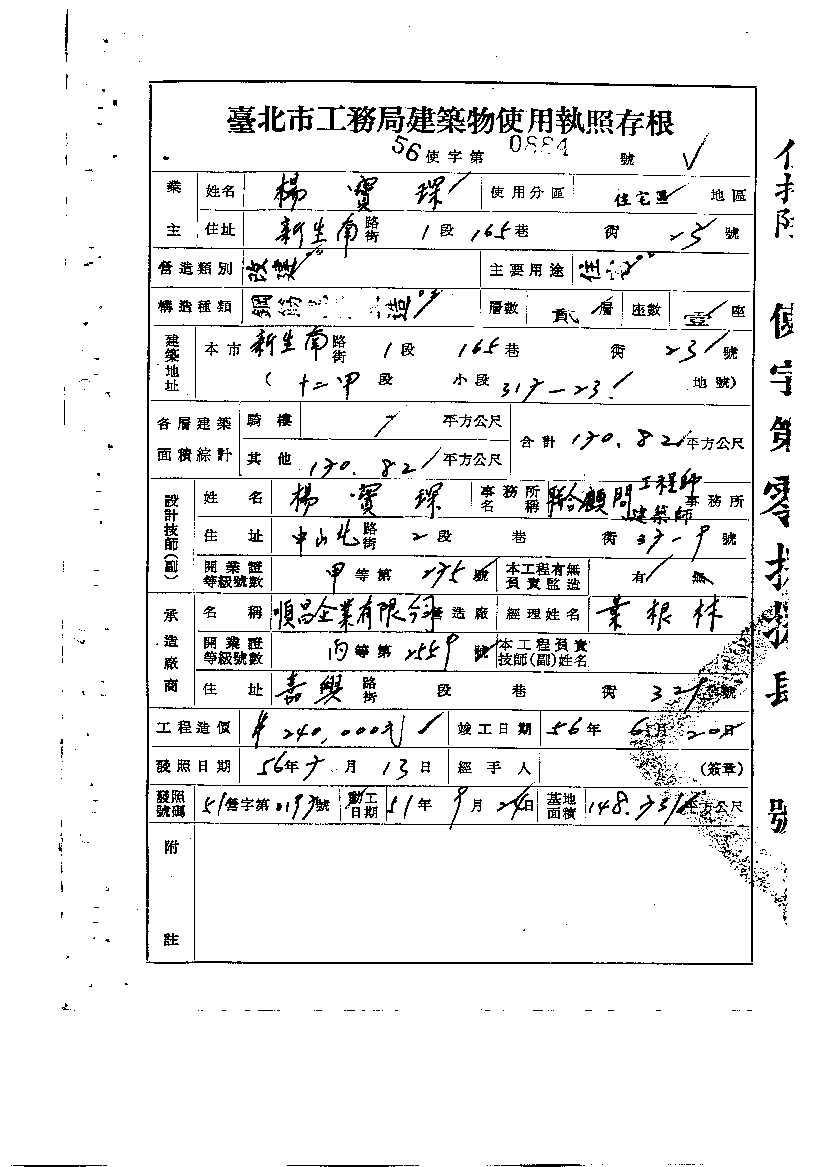 臺北市工務局建築物使用執照存根
56使字第0884號
業主 姓名 楊寶琛 使用分區 住宅區 地區
住址 新生南路街 1段 165巷 街 23號
營造類別 改建 主要用途 住
構造種類 鋼筋 造 層數 貳層 座數 壹座
建築地址 本市 新生南路街 1段 165巷 街 23號
(十二甲段 小段 317-23 地號)
各層建築面積綜計 騎樓 平方公尺 合計 170.82平方公尺
其他 170.82平方公尺
設計技師(副) 姓名 楊寶琛 事務所名稱 聯合顧問工程師建築師事務所
住址 中山北路街 2段 巷 街 37-9號
開業證等級號數 甲等第275號 本工程有無負責監造 有 無
承造廠商 名稱 順昌企業有限公司營造廠 經理姓名 葉根林
開業證等級號數 丙等第2559號 本工程負責技師(副)姓名
住址 嘉興路街 段 巷 街 號
工程造價 240,000元 竣工日期 56年6月20日
發照日期 56年7月13日 經手人 (簽章)
發照號碼 51營字第0197號 動工日期 51年9月24日 基地面積 148.73平方公尺
附註
使字第零捌捌 號